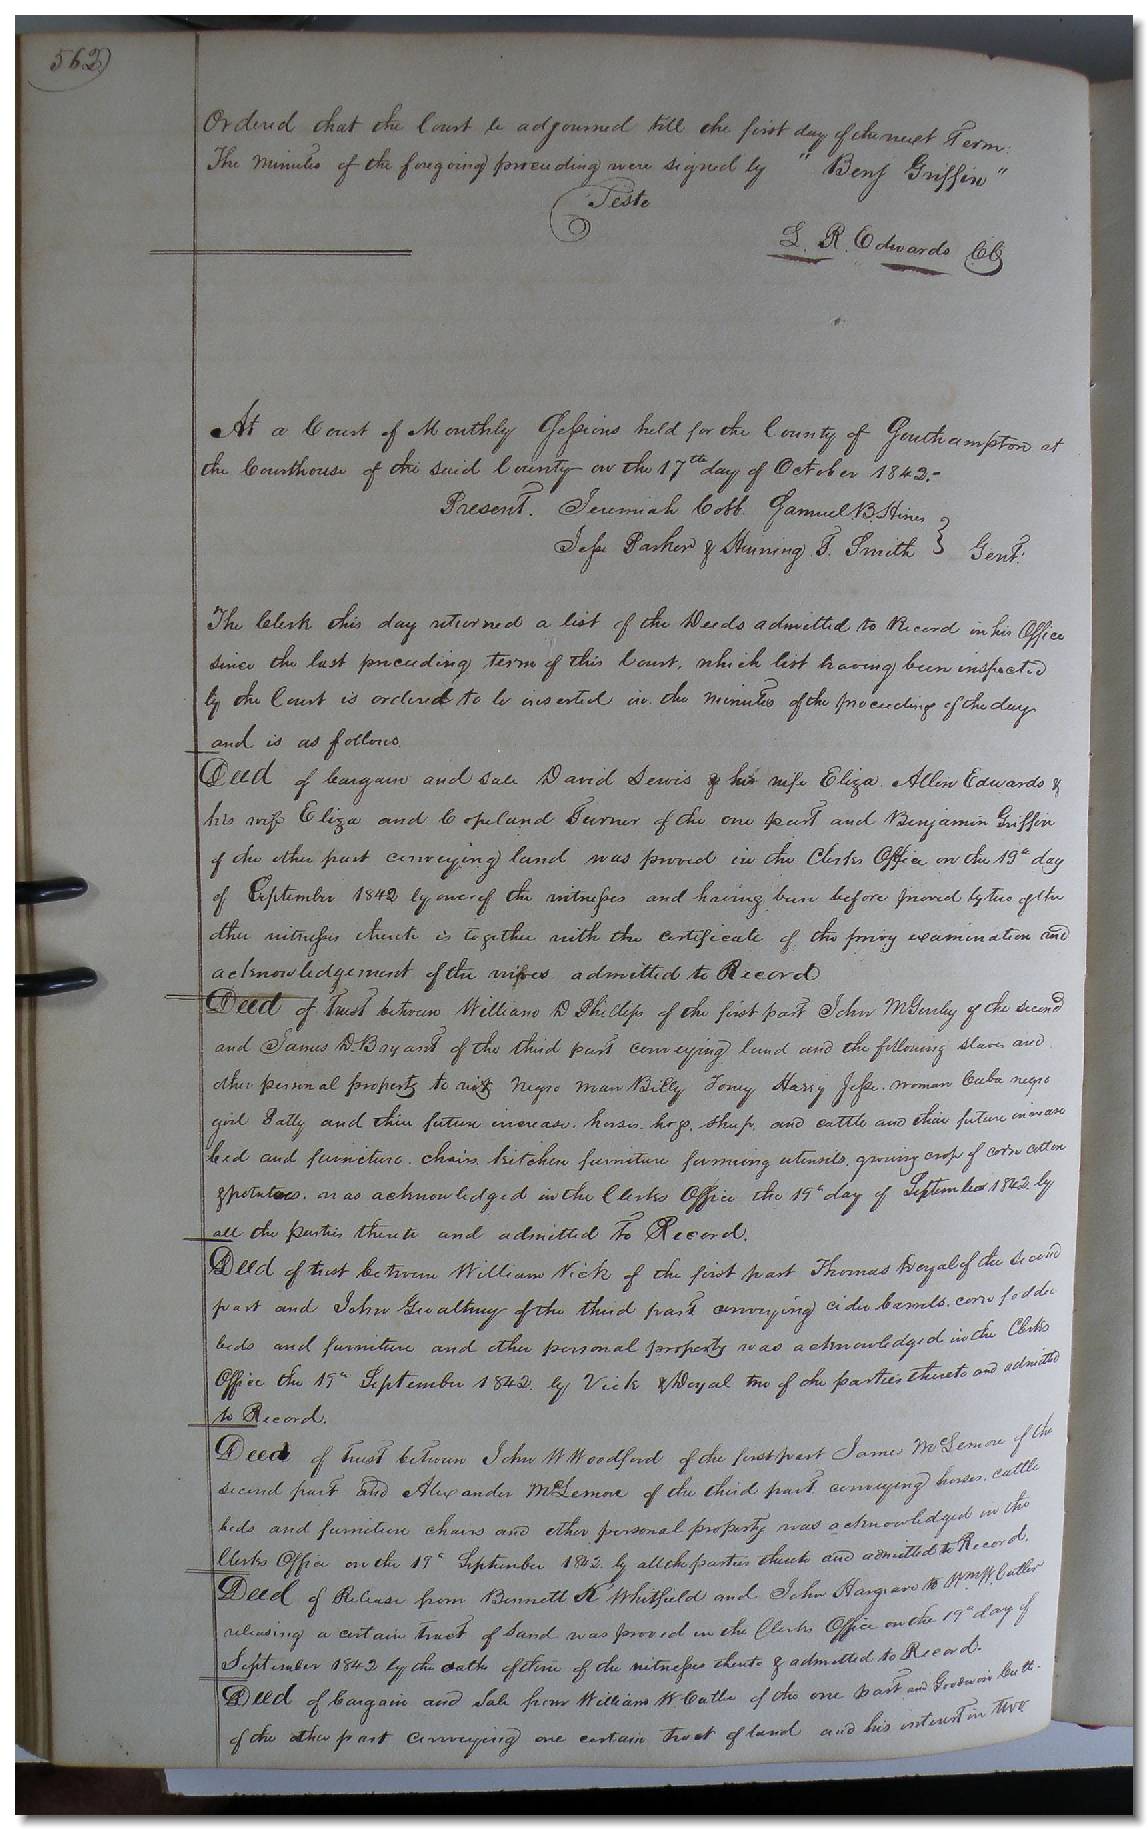 562)
Ordered that the Court be adjourned till the first day of the next Term.
The minutes of the foregoing proceeding were signed by "Benj Griffin"
Teste
L. R. Edwards CC
At a Court of Monthly Sessions held for the County of Southampton at
the Courthouse of the said County on the 17th day of October 1842.
Present. Jeremiah Cobb Samuel B. Hines
Jesse Parker & Hinning T. Smith } Gent.
The Clerk this day returned a list of the Deeds admitted to Record in his Office
since the last preceeding term of this Court, which list having been inspected
by the Court is ordered to be inserted in the minutes of the proceeding of the day
and is as follows.
Deed of bargain and sale David Lewis & his wife Eliza Allen Edwards &
his wife Eliza and Copeland Turner of the one part and Benjamin Griffin
of the other part conveying land was proved in the Clerks Office on the 19th day
of September 1842 by one of the witnesses and having been before proved by two of the
other witnesses thereto is together with the certificate of the privy examination and
acknowledgement of the wives admitted to Record
Deed of Trust between William D Phillips of the first part John McGinley of the second
and James D. Bryant of the third part conveying land and the following slaves and
other personal property to wit negro man Billy Toney Harry Jesse. woman Cuba negro
girl Patty and their future increase. horses. hogs. sheep. and cattle and their future increase
bed and furniture. chairs. kitchen furniture farming utensils. growing crop of corn cotton
& potatoes. was acknowledged in the Clerks Office the 19th day of September 1842 by
all the parties thereto and admitted to Record.
Deed of trust between William Vick of the first part Thomas Doyal of the second
part and John Gwaltney of the third part conveying cider barrels. corn fodder
beds and furniture and other personal property was acknowledged in the Clerks
Office the 19th September 1842. by Vick & Doyal two of the parties thereto and admitted
to Record.
Deed of trust between John W Woodford of the first part James McLemore of the
second part and Alexander McLemore of the third part. conveying horses. cattle
beds and furniture chairs and other personal property was acknowledged in the
Clerks Office on the 19th September 1842. by all the parties thereto and admitted to Record.
Deed of Release from Bennett K Whitfield and John Hargrave to Wm W. Cutler
releasing a certain tract of Land was proved in the Clerks Office on the 19th day of
September 1842 by the oaths of three of the witnesses thereto & admitted to Record.
Deed of bargain and sale from William W Cutler of the one part and Goodwin
of the other part conveying one certain tract of land and his interest in two